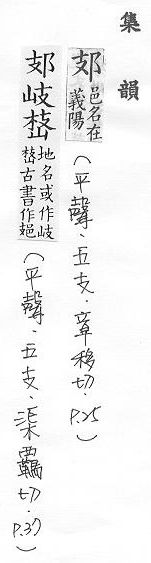 集韻
郂邑名在義陽（平聲．五支．章移切．P.25）
郂岐𡺸地名或作岐𡺸古書作𨙸（平聲．五支．渠羈切．P.37）